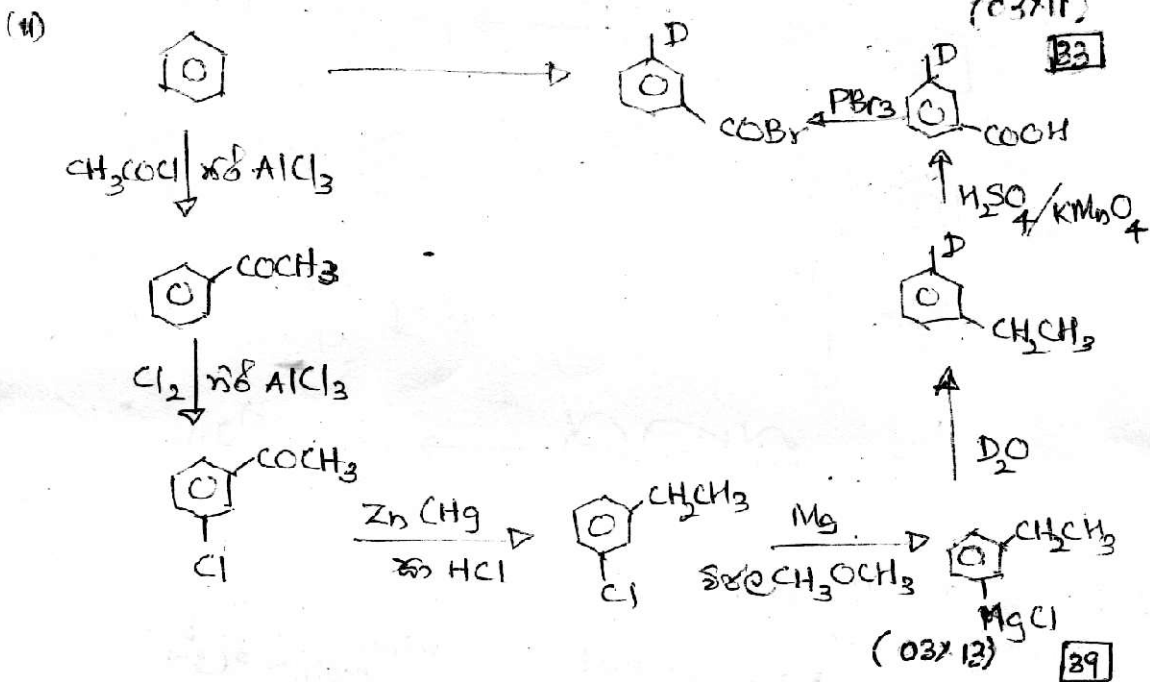 (II)
(03×11)
33
D
COBr
PBr3
D
COOH
CH3COCl නිර් AlCl3
H2SO4/KMnO4
COCH3
D
CH2CH3
Cl2 නිර් AlCl3
D2O
COCH3
Cl
Zn (Hg
සා HCl
CH2CH3
Cl
Mg
වියළි CH3OCH3
CH2CH3
MgCl
(03×13)
39